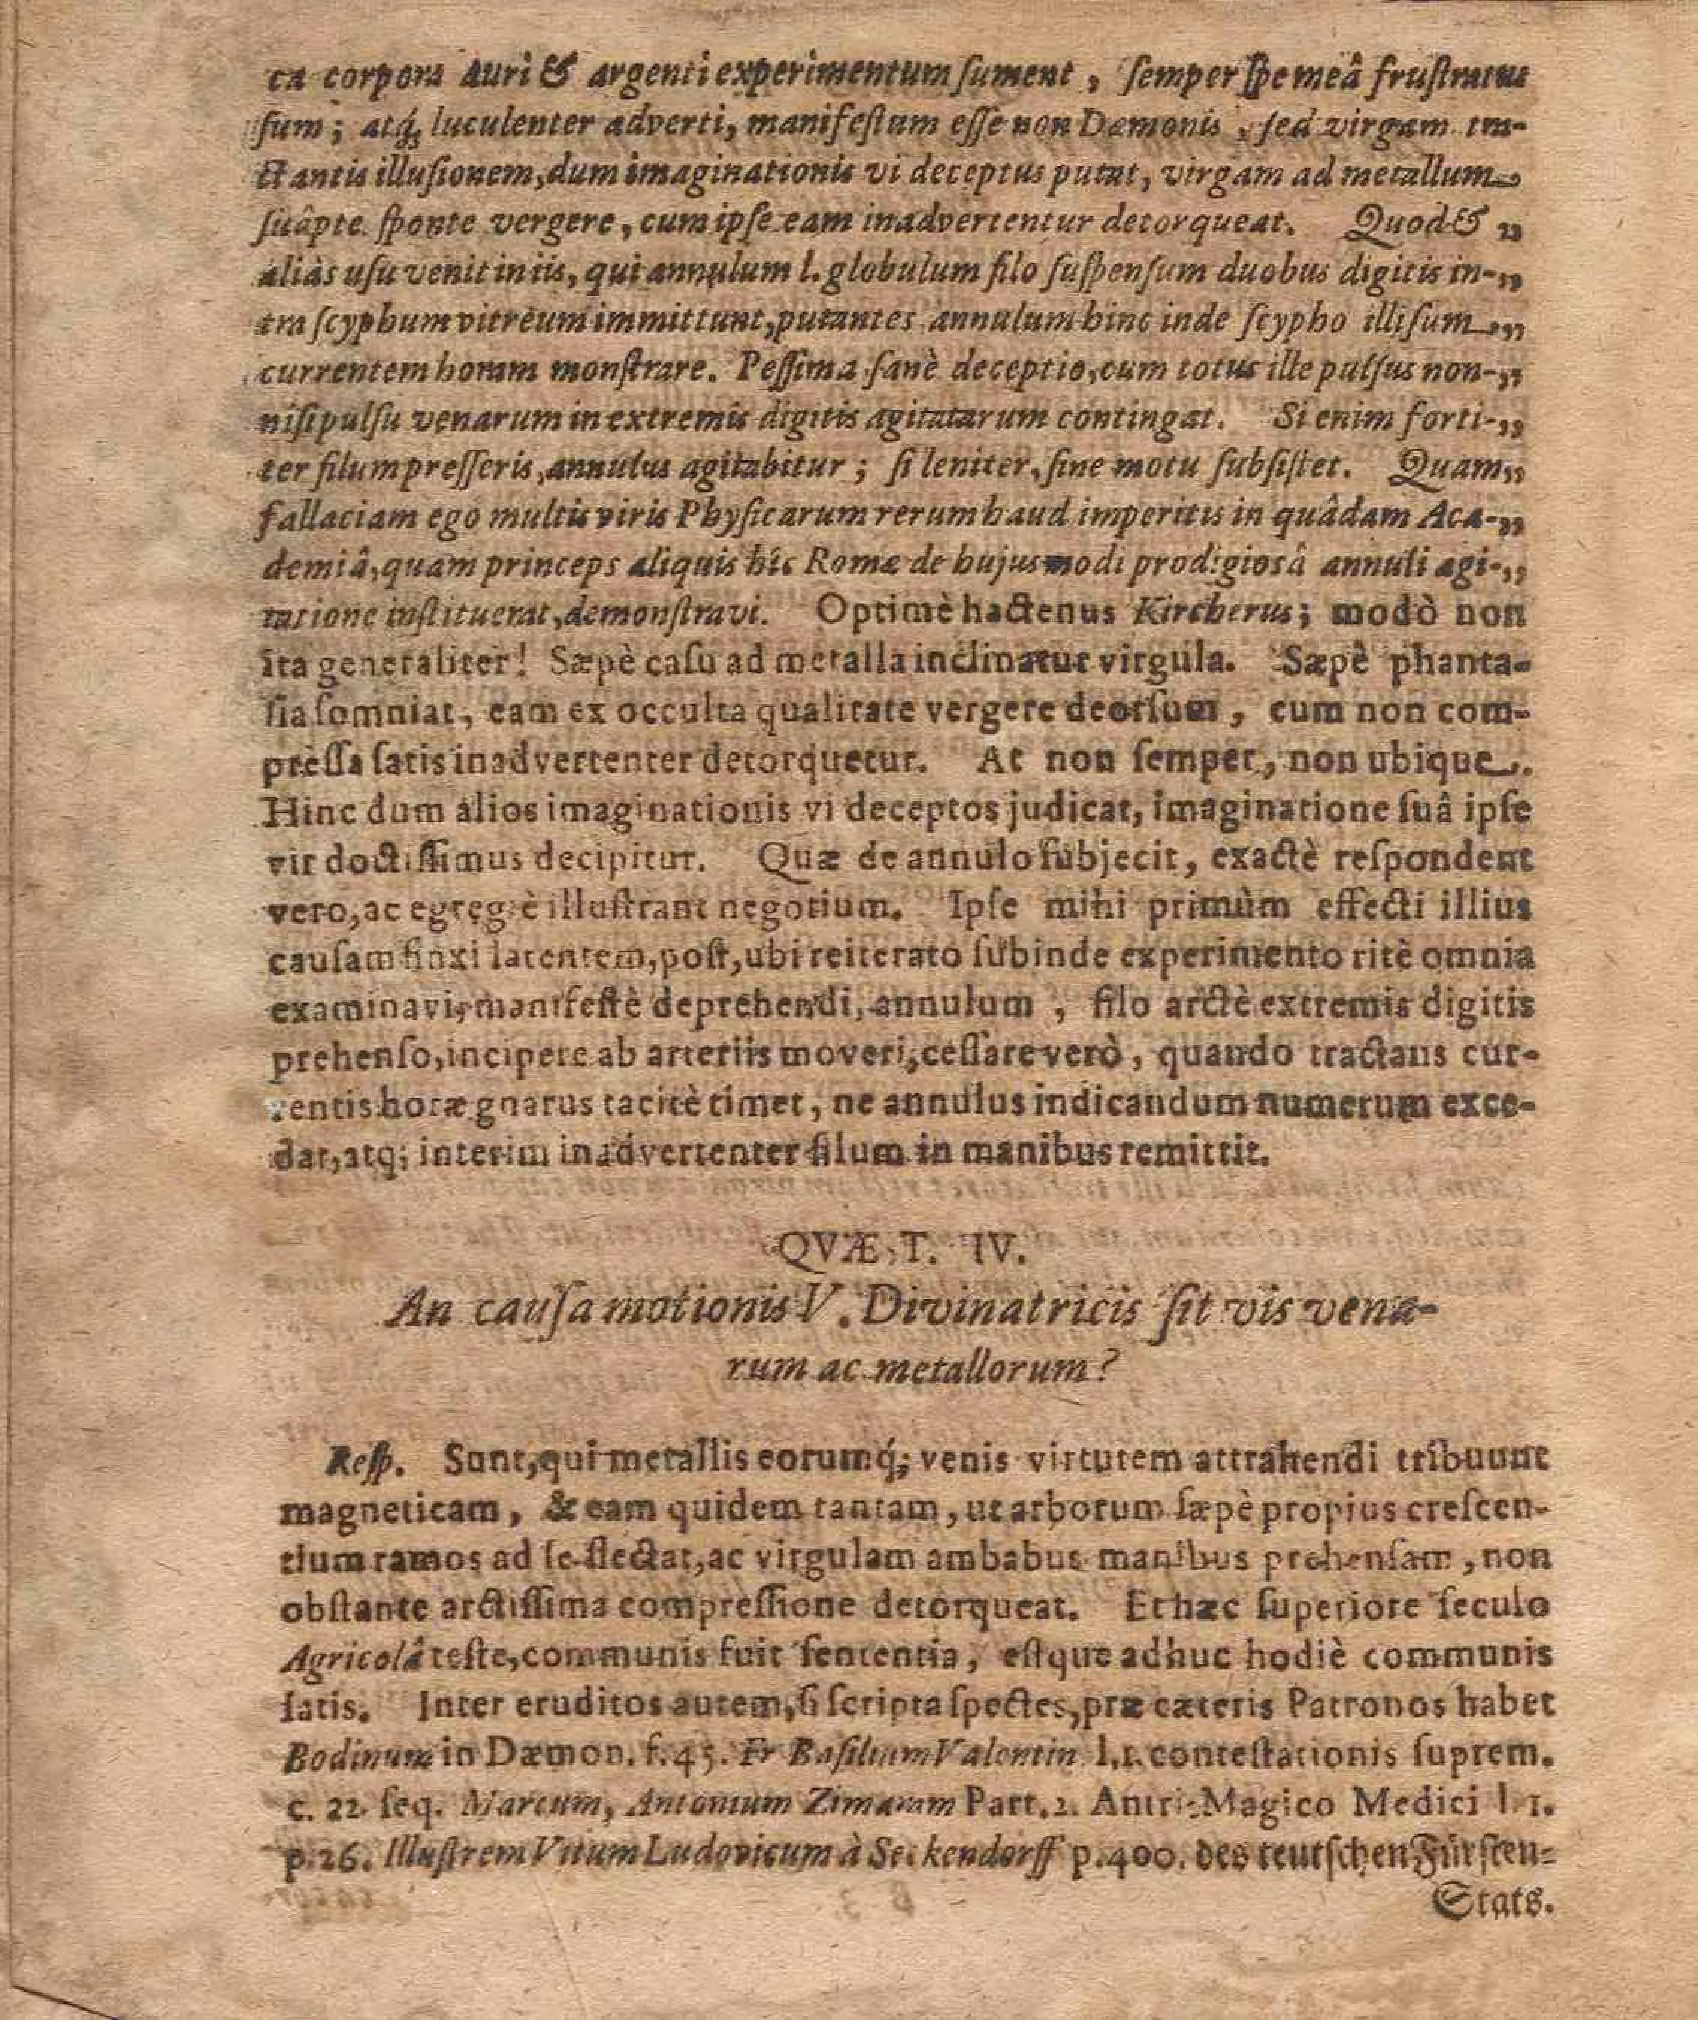 ca corpora auri & argenti experimentum ſument, ſemper ſpe meâ fruſtratus
ſum; atq́; luculenter adverti, manifeſtam eſſe non Dæmonis, ſed virgam tra-
ctantis illuſionem, dum imaginationis vi deceptus putat, virgam ad metallum
ſuâpte ſponte vergere, cum ipſe eam inadvertentur detorqueat. Quod & „
aliàs uſu venit in iis, qui annulum l. globulum filo ſuſpenſum duobus digitis in- „
tra ſcyphum vitreum immittunt, putantes annulum hinc inde ſcypho illiſum „
currentem horam monſtrare. Peſſima ſanè deceptio, cum totus ille pulſus non- „
niſi pulſu venarum in extremis digitis agitatarum contingat. Si enim forti- „
ter filum preſſeris, annulus agitabitur; ſi leniter, ſine motu ſubſiſtet. Quam „
fallaciam ego multis viris Phyſicarum rerum haud imperitis in quâdam Aca- „
demiâ, quam princeps aliquis hîc Romæ de hujusmodi prodigiosâ annuli agi- „
tatione inſtituerat, demonſtravi. Optimè hactenus Kircherus; modò non
ita generaliter! Sæpè caſu ad metalla inclinatur virgula. Sæpè phanta-
ſia ſomniat, eam ex occulta qualitate vergere deorſum, cum non com-
prèſſa ſatis inadvertenter detorquetur. At non ſemper, non ubique.
Hinc dum alios imaginationis vi deceptos judicat, imaginatione ſuâ ipſe
vir doctiſſimus decipitur. Quæ de annulo ſubjecit, exactè reſpondent
vero, ac egregiè illuſtrant negotium. Ipſe mihi primùm effecti illius
cauſam finxi latentem, poſt, ubi reiterato ſubinde experimento ritè omnia
examinavi, manifeſtè deprehendi, annulum, filo arctè extremis digitis
prehenſo, incipere ab arteriis moveri, ceſſare verò, quando tractans cur-
rentis horæ gnarus tacitè timet, ne annulus indicandum numerum exce-
dat, atq; interim inadvertenter filum in manibus remittit.
QVÆST. IV.
An cauſa motionis V. Divinatricis ſit vis vena-
rum ac metallorum?
Reſp. Sunt, qui metallis eorumq́; venis virtutem attrahendi tribuunt
magneticam, & eam quidem tantam, ut arborum ſæpè propius creſcen-
tium ramos ad ſe flectat, ac virgulam ambabus manibus prehenſam, non
obſtante arctiſſima compreſſione detorqueat. Et hæc ſuperiore ſeculo
Agricolâ teſte, communis fuit ſententia, eſtque adhuc hodiè communis
ſatis. Inter eruditos autem, ſi ſcripta ſpectes, præ cæteris Patronos habet
Bodinum in Dæmon. f. 45. Fr Baſilium Valentin l. 1. conteſtationis ſuprem.
c. 22 ſeq. Marcum, Antonium Zimaram Part. 2. Antri-Magico Medici l. 1.
p. 26. Illuſtrem Virum Ludovicum à Seckendorff p. 400. des teutſchen Fürſten-
Stats.